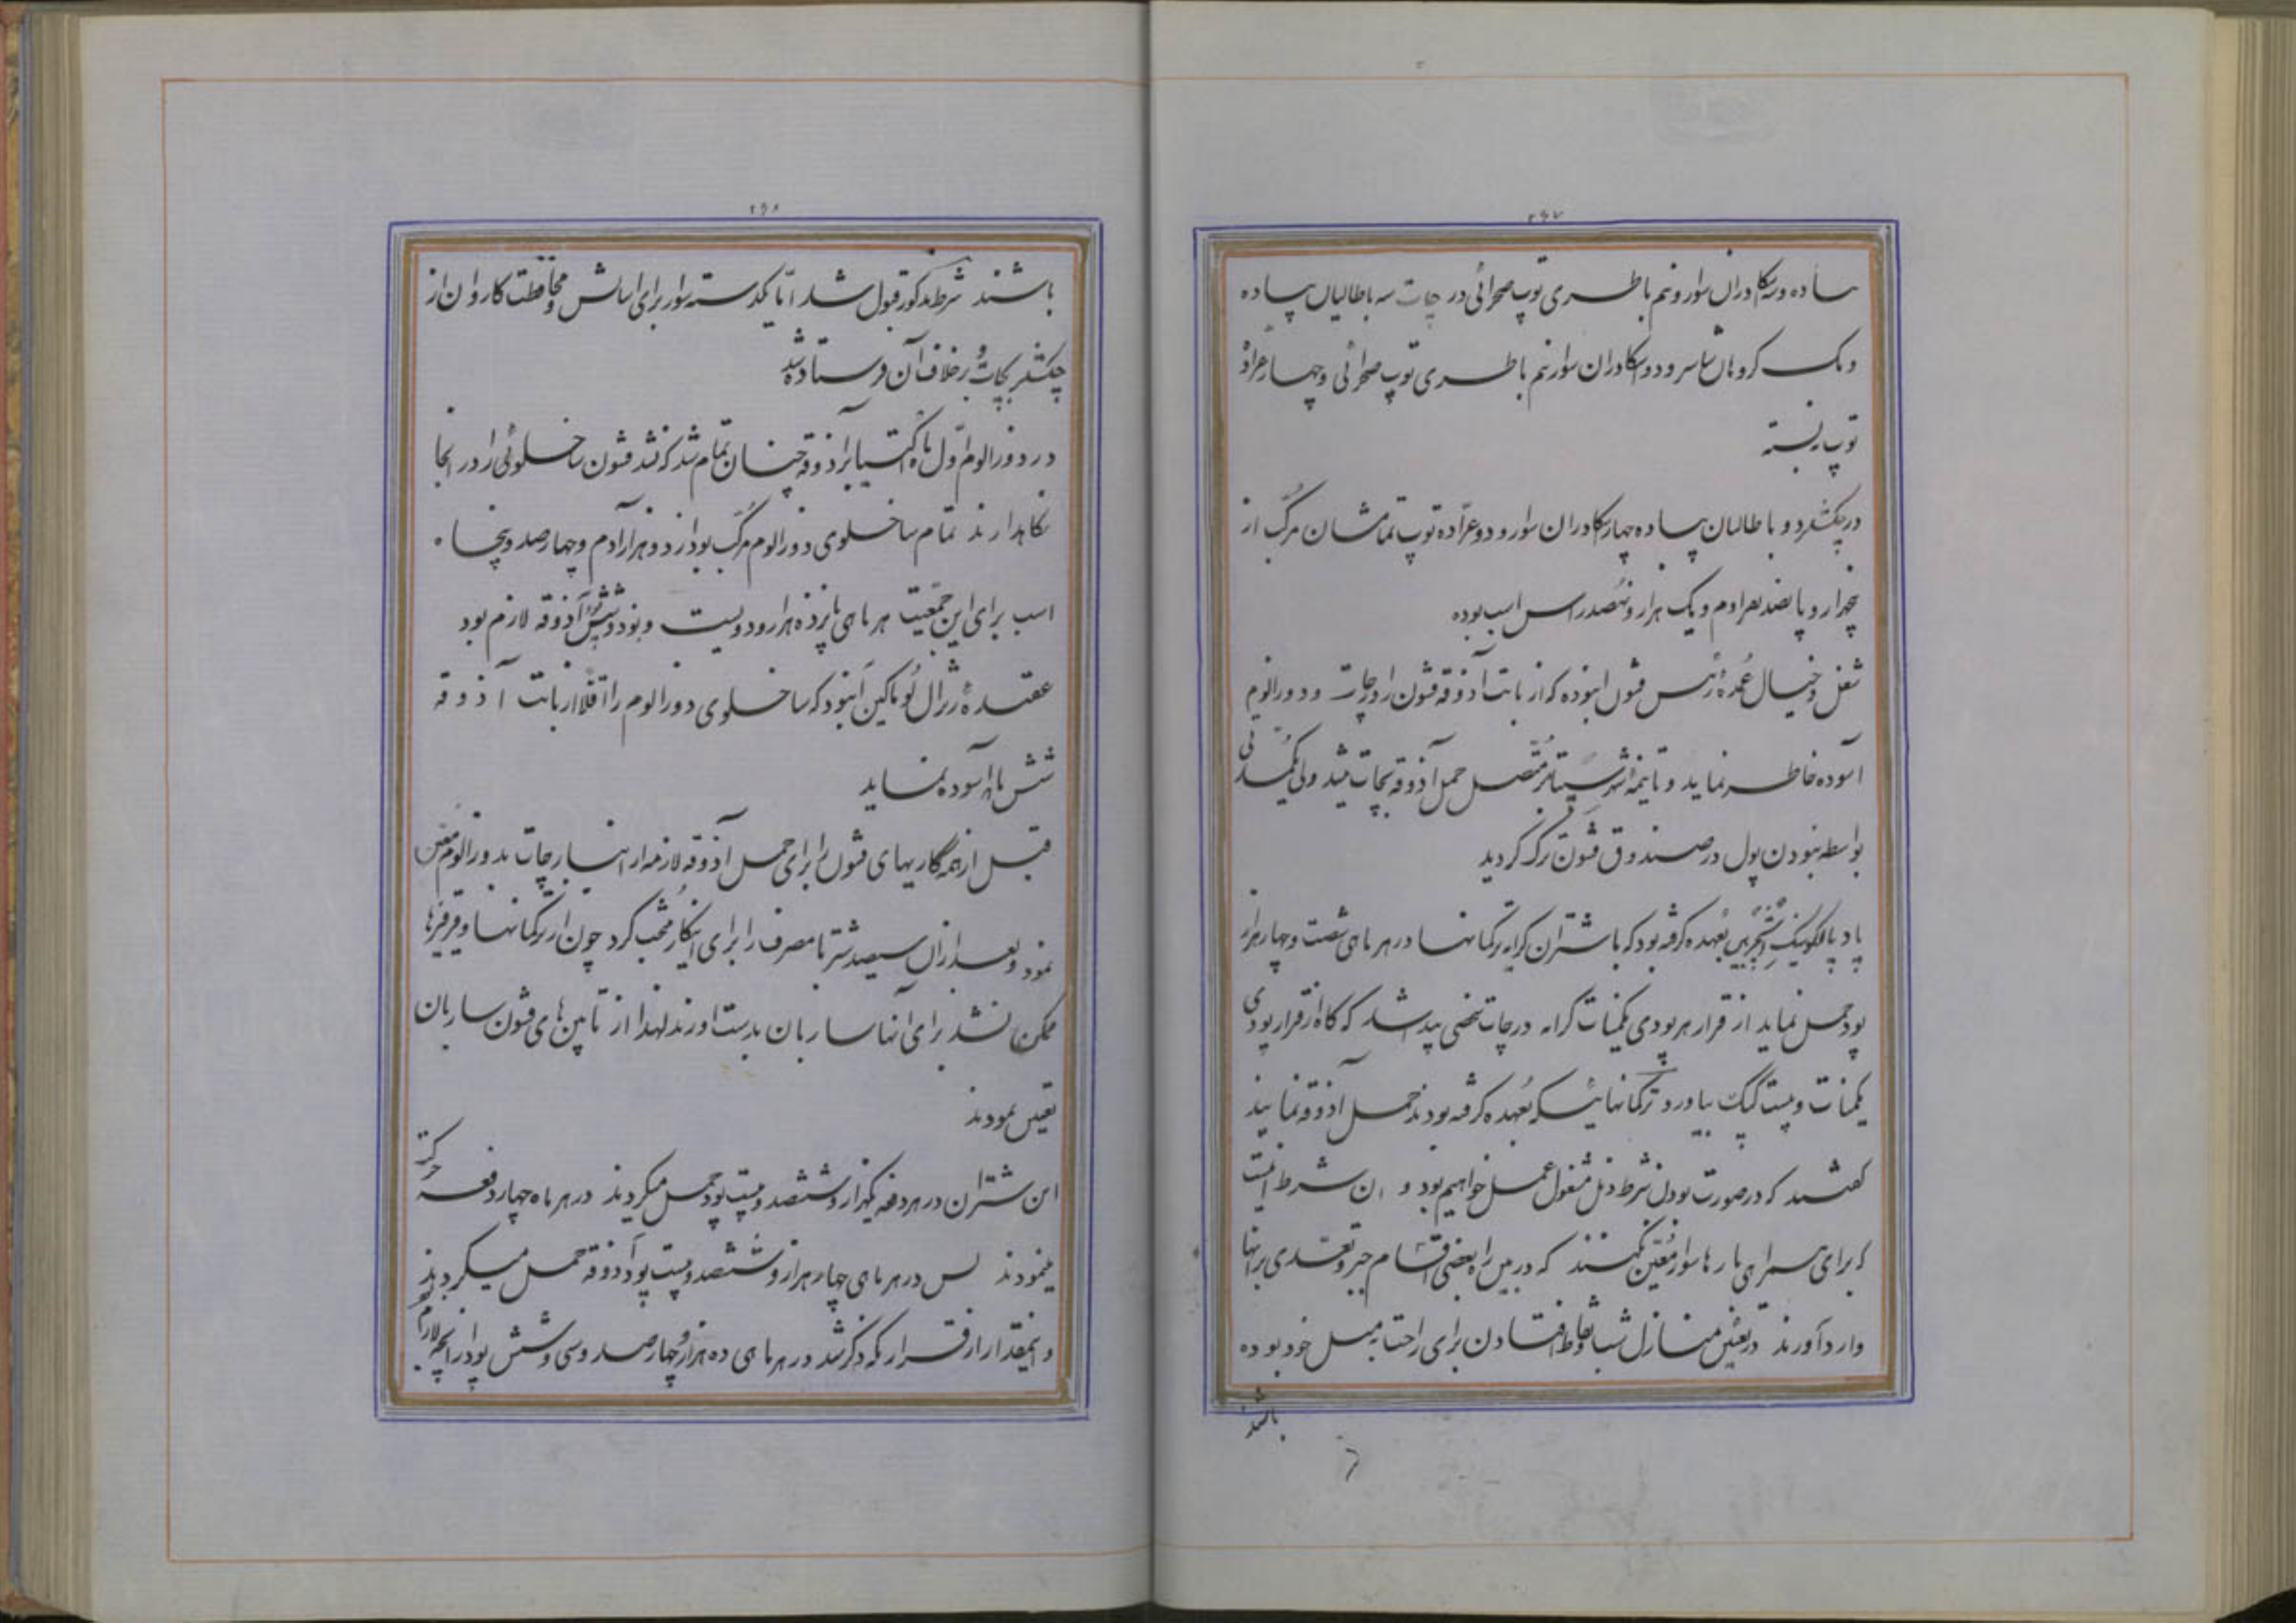 ۲۶۷
پیاده و سکادران سوار و نیم باطری توپ صحرائی در چات سه باطالیان پیاده
و یک کروهان ساپر و دو سکادران سوار نیم باطری توپ صحرائی و چهار عراده
توپ
در چکشلر دو باطالیان پیاده چهار سکادران سوار و دو عرّاده توپ تمامشان مرکّب از
پنجهزار و پانصد نفر آدم و یک هزار و نهصد راس اسب بوده
شغل و خیال عُمدهٔ رئیس قشون این بوده که از بابت آذوقه قشون را در چات و دوزالوم
آسوده خاطر نماید و تا نیمه شهر سیتابر متّصل حمل آذوقه بچات میشد ولی یکمدّتی
بواسطه نبودن پول در صندوق قشون ترک کردید
بعُهده کرفته بود که با شتران کرایه ترکمانها در هر ماهی شصت و چهار هزار
پود حمل نماید از قرار هر پودی یکمنات کرایه در چات شخصی پیدا شد که کاه از قرار پودی
یکمنات و بیست کپک بیاورد ترکمانهائیکه بعُهده کرفته بودند حمل آذوقه نمایند
کفتند که در صورت بودن شرط ذیل مشغول عمل خواهیم بود و آن شرط اینست
که برای همراهی بارها سوار مُعیّن نکنند که در بین راه بعضی اقسام جبر و تعدّی بر آنها
وارد آورند در تعیین منازل شب و افتادن برای راحت به میل خود بوده
باشند
۲۶۸
باشند شرط مذکور قبول شد امّا یکدسته سوار برای آسایش و محافظت کاروان از
چکشلر بچات برخلاف آن فرستاده شد
در دوزالوم اوّل ماه اکتیابر آذوقه چنان تمام شد که نشد قشون ساخلوئی را در آنجا
نکاهدارند تمام ساخلوی دوزالوم مرکّب بود از دو هزار آدم و چهارصد و پنجاه
اسب برای این جمعیّت هر ماهی پانزده هزار و دویست و نود و شش پود آذوقه لازم بود
عقیدهٔ ژنرال لُوماکین این بود که ساخلوی دوزالوم را اقلاً از بابت آذوقه
شش ماه آسوده نماید
قبل از همه کاریهای قشون را برای حمل آذوقه لازمه از انبار چات به دوزالوم معیّن
نمود و بعد از آن سیصد شتر با مصرف را برای اینکار منتخب کرد چون از ترکمانها و قرقیزها
ممکن نشد برای آنها ساربان بدست آورند لهذا از تابین های قشون ساربان
تعیین نمودند
این شتران در هر دفعه یکهزار و ششصد و بیست پود حمل میکردند در هر ماه چهار دفعه حرکت
مینمودند پس در هر ماهی چهار هزار و ششصد و بیست پود آذوقه حمل میکردند
و اینمقدار از قراریکه ذکر شد در هر ماهی ده هزار و چهارصد و سی و شش پود از آنچه لازم بود